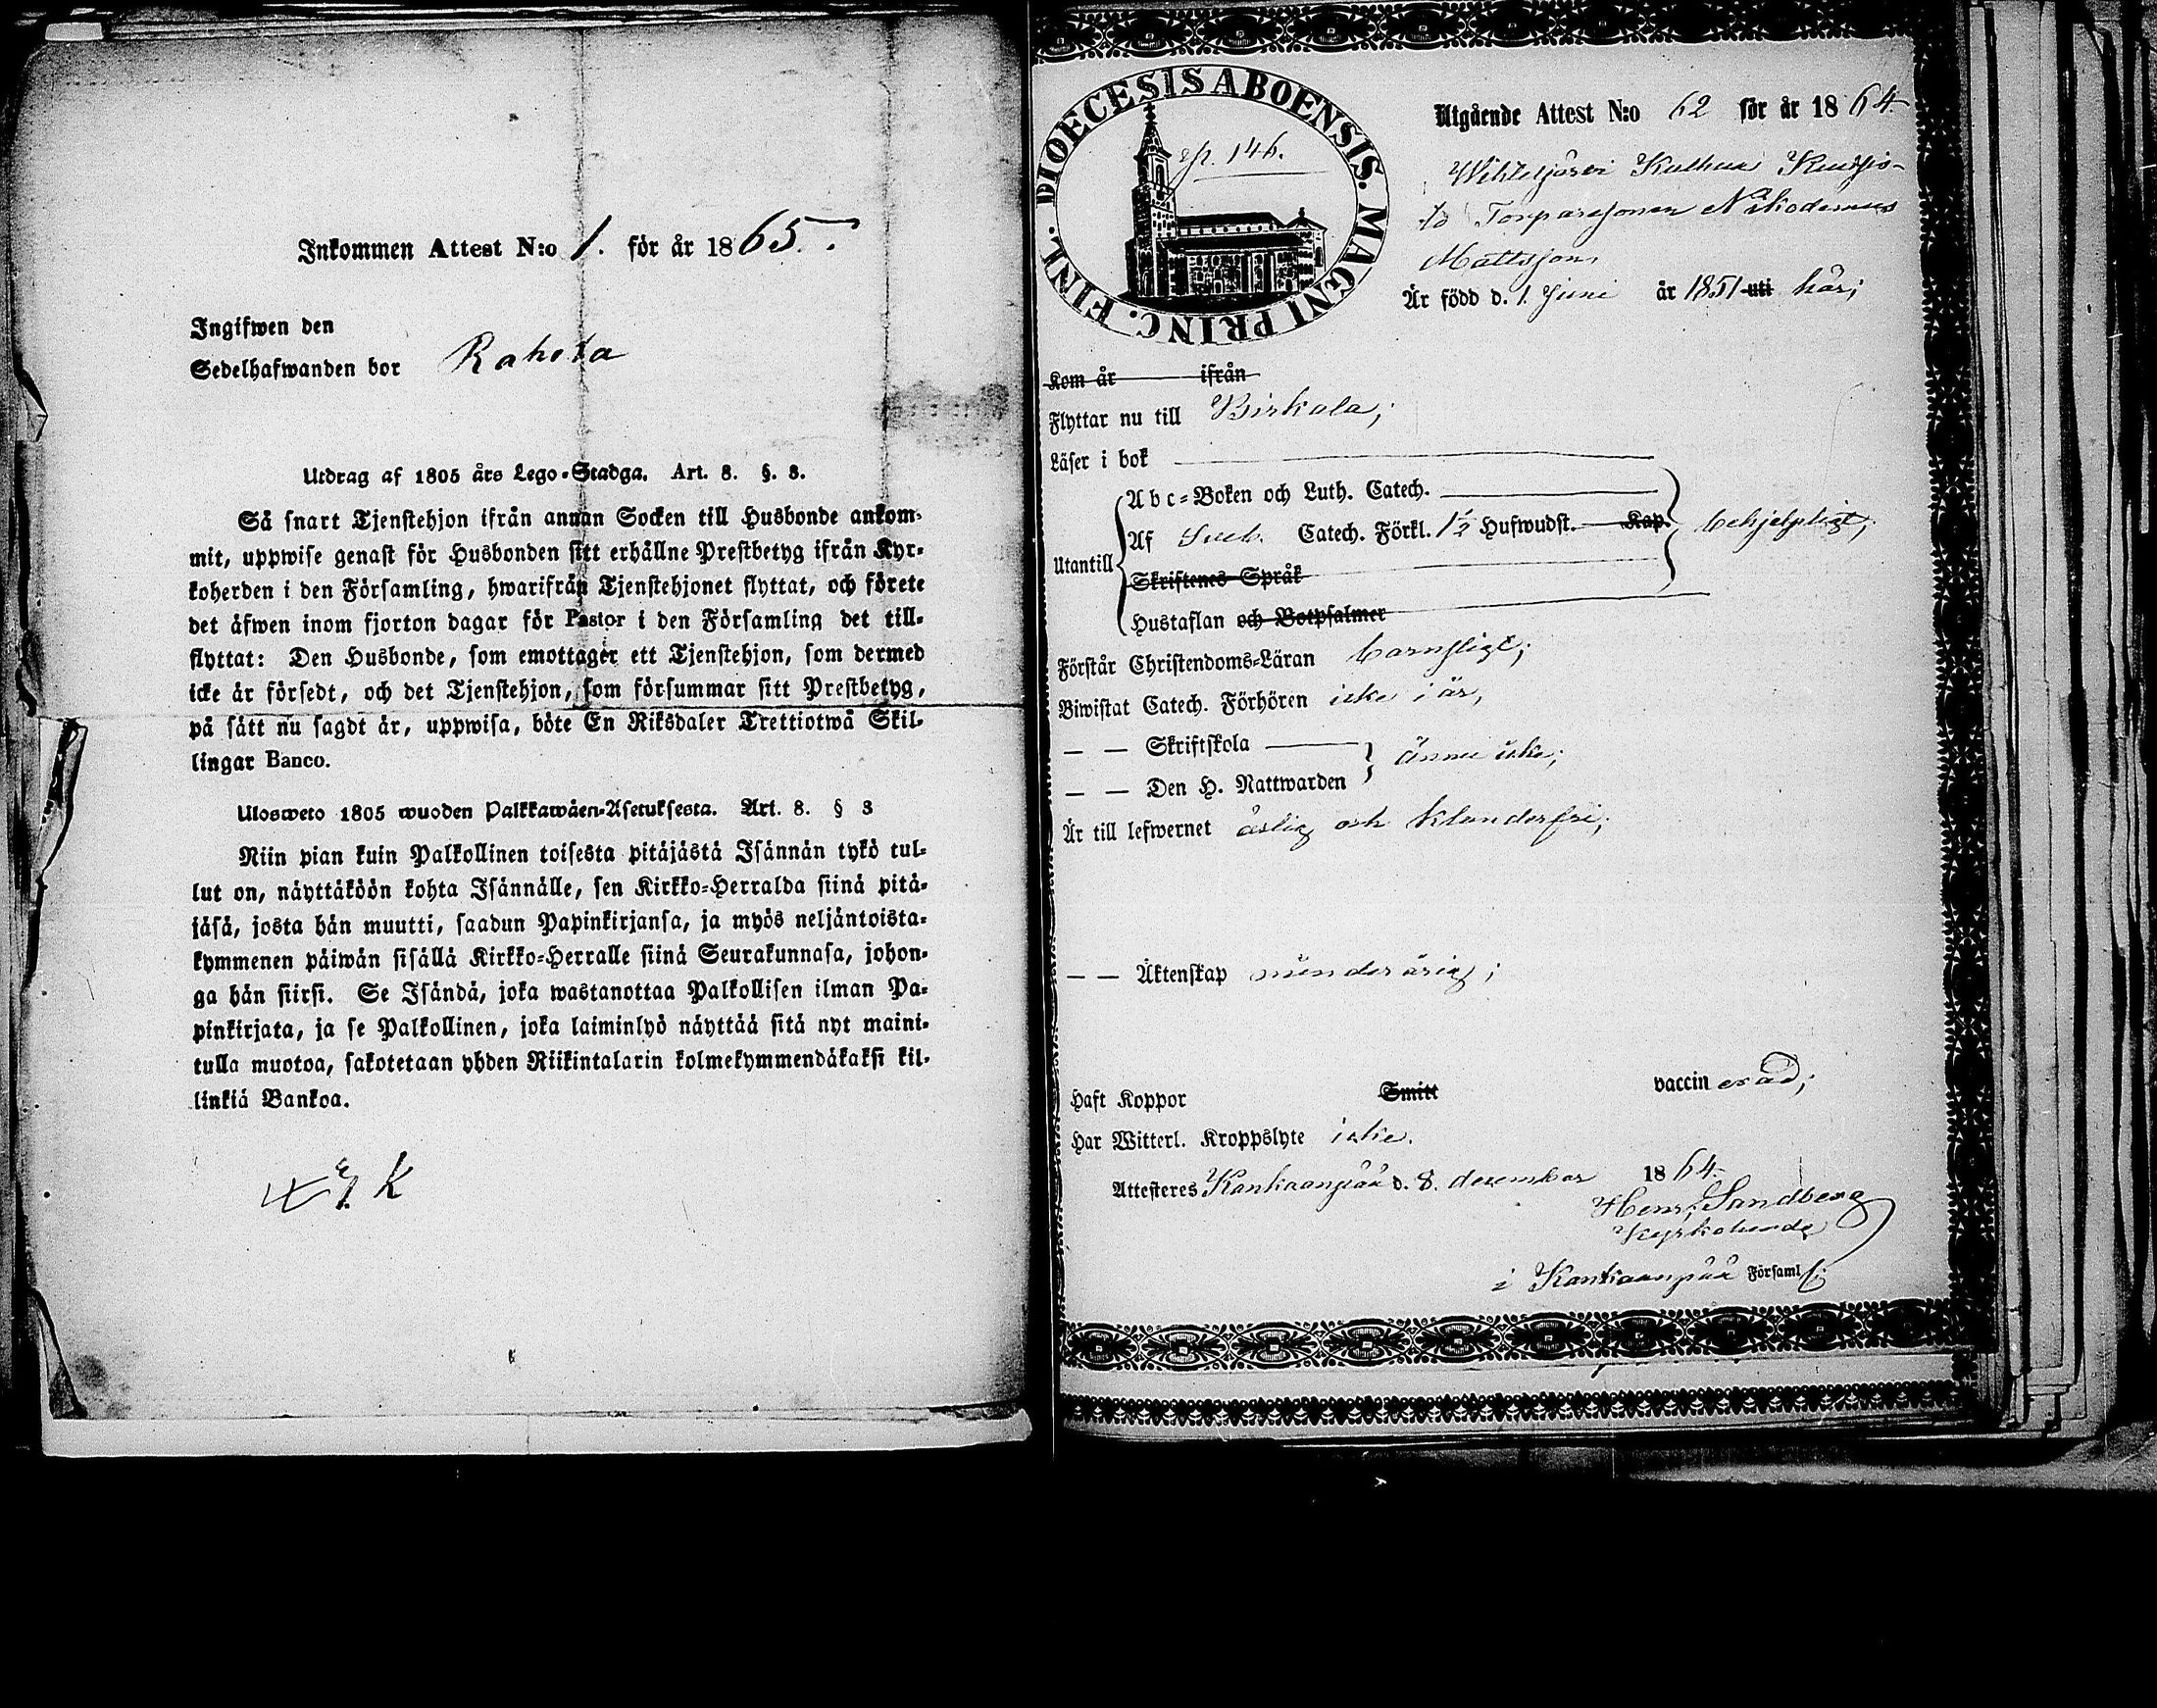 Inkommen Attest N:o 1. för år 1865.
Ingifwen den
Sedelhafwanden bor Rahola
Utdrag af 1805 års Lego-Stadga. Art. 8. §. 3.
Så snart Tjenstehjon ifrån annan Socken till Husbonde ankom-
mit, uppwise genast för Husbonden sitt erhållne Prestbetyg ifrån Kyr-
koherden i den Församling, hwarifrån Tjenstehjonet flyttat, och förete
det äfwen inom fjorton dagar för Pastor i den Församling det till-
flyttat: Den Husbonde, som emottager ett Tjenstehjon, som dermed
icke är försedt, och det Tjenstehjon, som försummar sitt Prestbetyg,
på sätt nu sagdt är, uppwisa, böte En Riksdaler Trettiotwå Skil-
lingar Banco.
Ulosweto 1805 wuoden Palkkawäen-Asetuksesta. Art. 8. § 3
Niin pian kuin Palkollinen toisesta pitäjästä Isännän tykö tul-
lut on, näyttäköön kohta Isännälle, sen Kirkko-Herralda siinä pitä-
jäsä, josta hän muutti, saadun Papinkirjansa, ja myös neljäntoista-
kymmenen päiwän sisällä Kirkko-Herralle siinä Seurakunnasa, johon-
ga hän siirsi. Se Isändä, joka wastanottaa Palkollisen ilman Pa-
pinkirjata, ja se Palkollinen, joka laiminlyö näyttää sitä nyt maini-
tulla muotoa, sakotetaan yhden Riikintalarin kolmekymmendäkaksi kil-
linkiä Bankoa.
DIOECESIS ABOENSIS. MAGNI PRINC. FINL.
p. 146.
Utgående Attest N:o 62 för år 1864
Wihteljärvi
to Torparesonen Nikodemus
Mattsson,
Är född d. 1. Juni år 1851 uti här;
Kom år ifrån
Flyttar nu till Birkala;
Läser i bok
Utantill
Abc-Boken och Luth. Catech.
Af Sveb. Catech. Förkl. 1½ Hufwudst. Kap. behjelpligt;
Skriftenes Språk
Hustaflan och Botpsalmer
Förstår Christendoms-Läran barnsligt;
Biwistat Catech. Förhören icke i år,
— — Skriftskola
ännu icke;
— — Den H. Nattwarden
Är till lefwernet ärlig och klanderfri;
— — Äktenskap minderårig;
Haft Koppor Smitt vaccinerad;
Har Witterl. Kroppslyte icke.
Attesteres Kankaanpää d. 8. december 1864
Henr. Sandberg
Kyrkoherde
i Kankaanpää Församl.